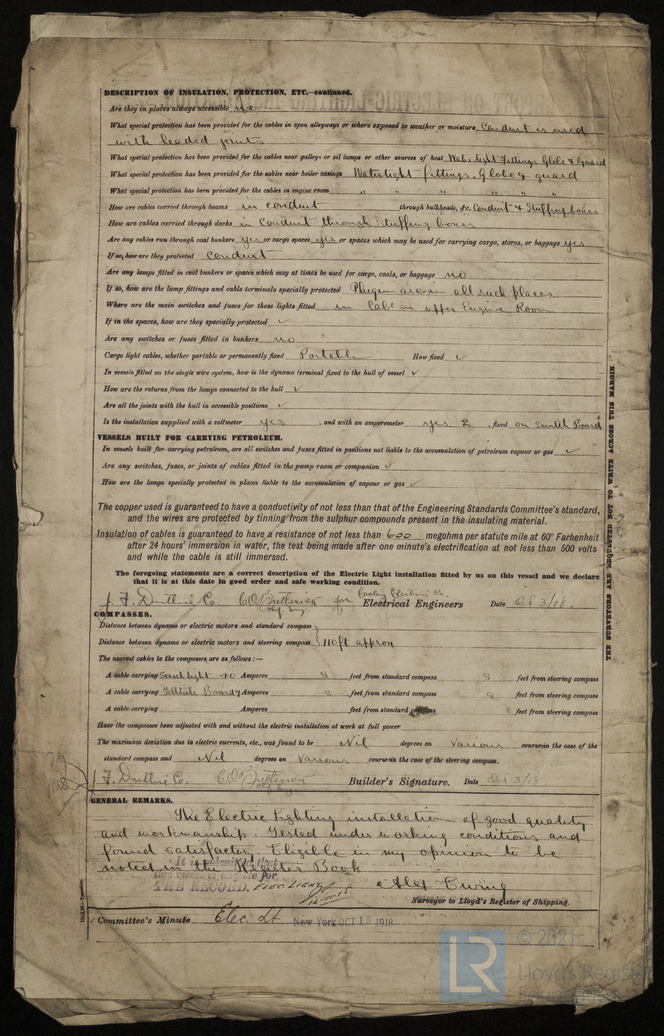 DESCRIPTION OF INSULATION, PROTECTION, ETC.—continued.
Are they in places always accessible no
What special protection has been provided for the cables in open alleyways or where exposed to weather or moisture Conduit is used
with leaded joints
What special protection has been provided for the cables near galleys or oil lamps or other sources of heat Water tight Fittings Globe & Guard
What special protection has been provided for the cables near boiler casings Watertight fittings. Globe & guard
What special protection has been provided for the cables in engine room " " " " " "
How are cables carried through beams in conduit through bulkheads, &c. Conduit & Stuffing boxes
How are cables carried through decks in Conduit through Stuffing boxes
Are any cables run through coal bunkers yes or cargo spaces yes or spaces which may be used for carrying cargo, stores, or baggage yes
If so, how are they protected Conduit
Are any lamps fitted in coal bunkers or spaces which may at times be used for cargo, coals, or baggage no
If so, how are the lamp fittings and cable terminals specially protected all such places
Where are the main switches and fuses for these lights fitted in Cab in upper Engine Room
If in the spaces, how are they specially protected ✓
Are any switches or fuses fitted in bunkers no
Cargo light cables, whether portable or permanently fixed Portable How fixed ✓
In vessels fitted on the single wire system, how is the dynamo terminal fixed to the hull of vessel ✓
How are the returns from the lamps connected to the hull ✓
Are all the joints with the hull in accessible positions ✓
Is the installation supplied with a voltmeter yes, and with an amperemeter yes 2, fixed on Switch Board
VESSELS BUILT FOR CARRYING PETROLEUM.
In vessels built for carrying petroleum, are all switches and fuses fitted in positions not liable to the accumulation of petroleum vapour or gas ✓
Are any switches, fuses, or joints of cables fitted in the pump room or companion ✓
How are the lamps specially protected in places liable to the accumulation of vapour or gas ✓
The copper used is guaranteed to have a conductivity of not less than that of the Engineering Standards Committee's standard,
and the wires are protected by tinning from the sulphur compounds present in the insulating material.
Insulation of cables is guaranteed to have a resistance of not less than 600 megohms per statute mile at 60° Farhenheit
after 24 hours' immersion in water, the test being made after one minute's electrification at not less than 500 volts
and while the cable is still immersed.
The foregoing statements are a correct description of the Electric Light installation fitted by us on this vessel and we declare
that it is at this date in good order and safe working condition.
J. F. Duthie Co. for Electric Co. Electrical Engineers Date Oct 3/18.
COMPASSES.
Distance between dynamo or electric motors and standard compass
Distance between dynamo or electric motors and steering compass 110ft approx
The nearest cables to the compasses are as follows:—
A cable carrying Search light 40 Amperes 8 feet from standard compass 8 feet from steering compass
A cable carrying Telltale Board 7 Amperes 8 feet from standard compass 8 feet from steering compass
A cable carrying Amperes feet from standard compass feet from steering compass
Have the compasses been adjusted with and without the electric installation at work at full power
The maximum deviation due to electric currents, etc., was found to be Nil degrees on Various course in the case of the
standard compass and Nil degrees on Various course in the case of the steering compass.
J. F. Duthie Co. Builder's Signature. Date Oct 3/18
GENERAL REMARKS.
The Electric Lighting installation of good quality
and workmanship. Tested under working conditions and
found satisfactory. Eligible in my opinion to be
noted in the Register Book
It is submitted that
this vessel is eligible for
THE RECORD. ELEC. LIGHT
Surveyor to Lloyd's Register of Shipping.
Committee's Minute Elec. Lt New York OCT 15 1918
THE SURVEYORS ARE REQUESTED NOT TO WRITE ACROSS THIS MARGIN
LR
© 2021
Lloyd's Register
Foundation